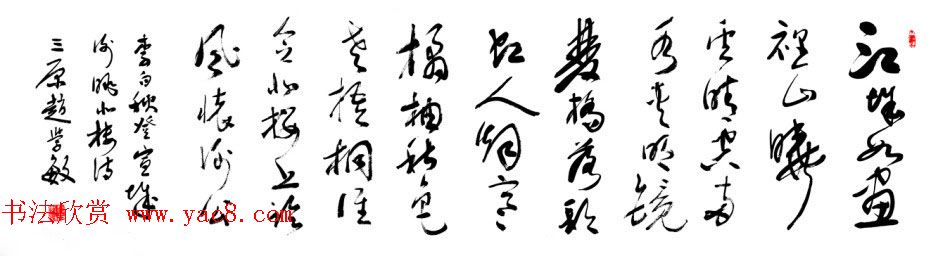 江城如畫
裡山曉
望晴空兩
水夾明鏡
雙橋落彩
虹人煙寒
橘柚秋色
老梧桐谁
念北樓上臨
風懷謝公
李白秋登宣城
谢朓北楼诗
三原趙学敏
书法欣赏 www.yac8.com